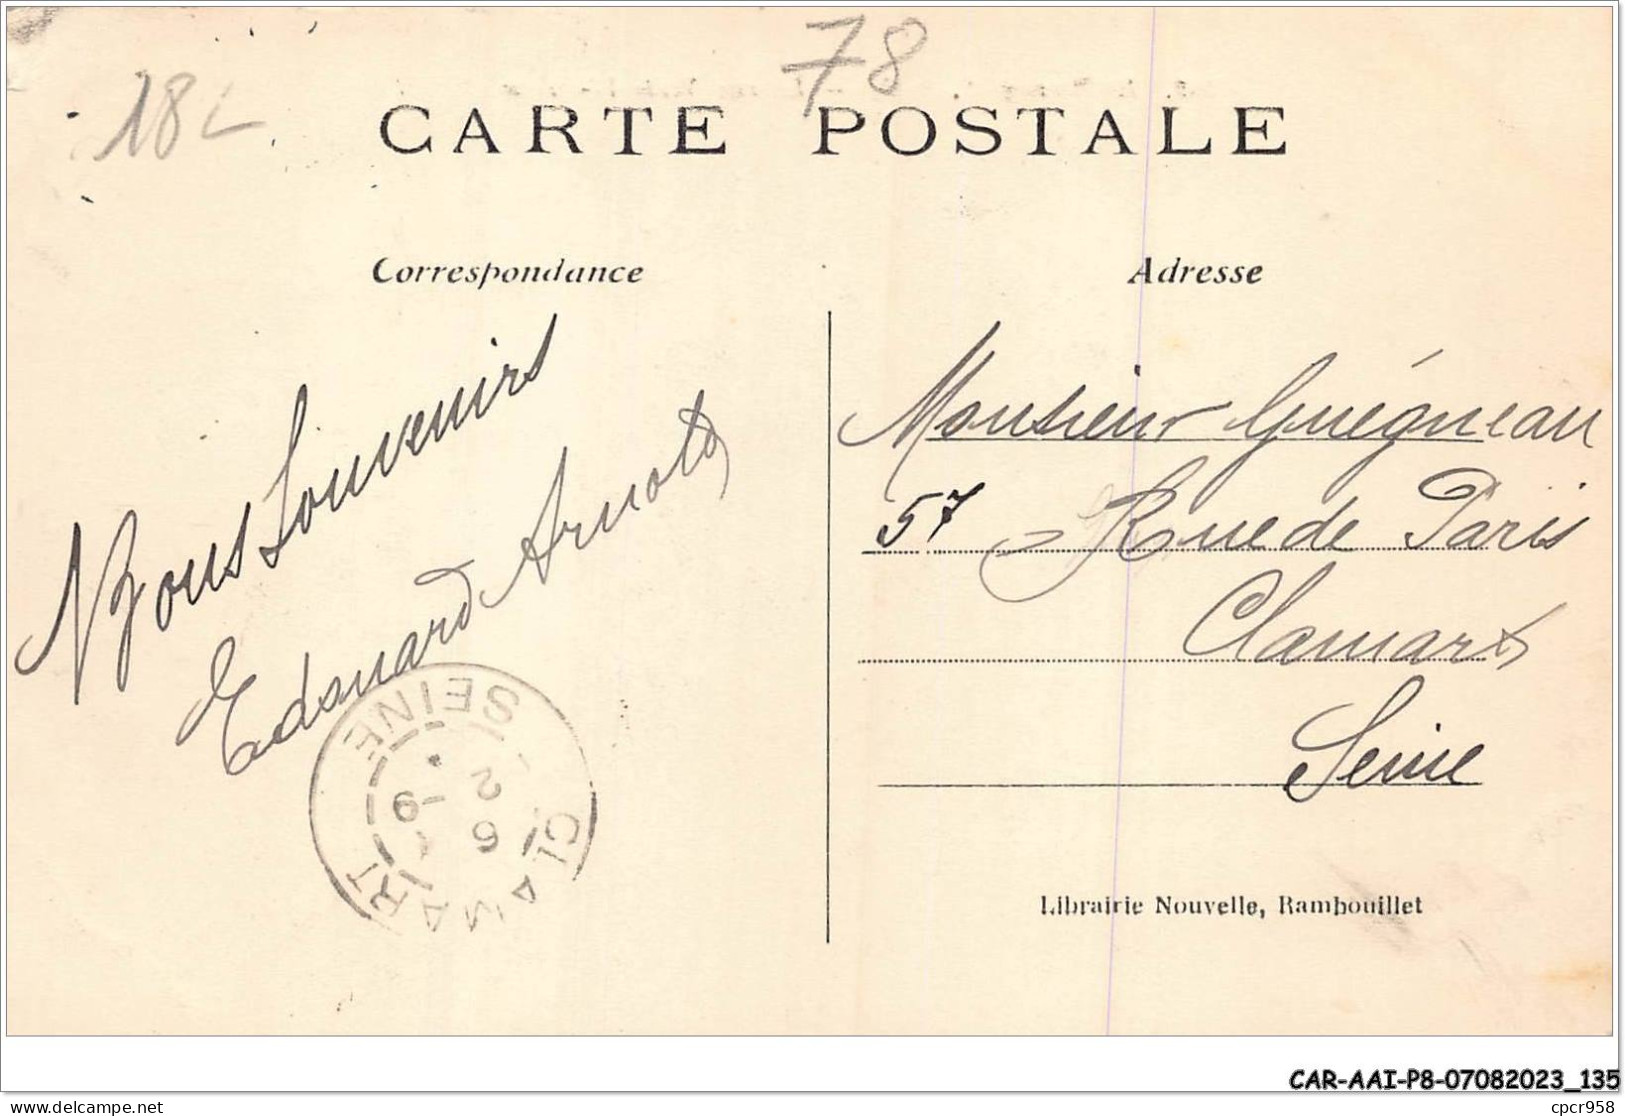 78
18
CARTE POSTALE
Correspondance
Adresse
Bons Souvenirs
Edouard Arnold
Monsieur Guégneau
57 Rue de Paris
Clamart
Seine
CLAMART
SEINE
Librairie Nouvelle, Rambouillet
CAR-AAI-P8-07082023_135
delcampe.net
cpcr958